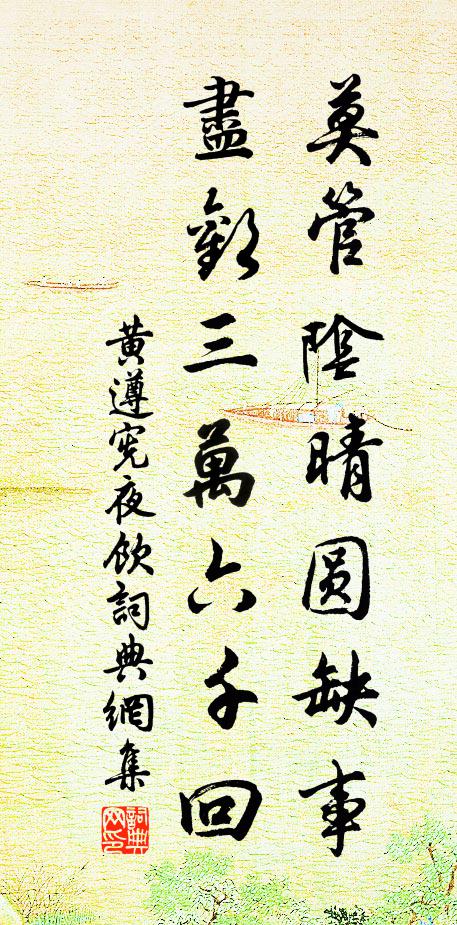 莫管陰晴圓缺事
盡歡三萬六千回
黄遵宪夜飲詞典網集
詞典网印